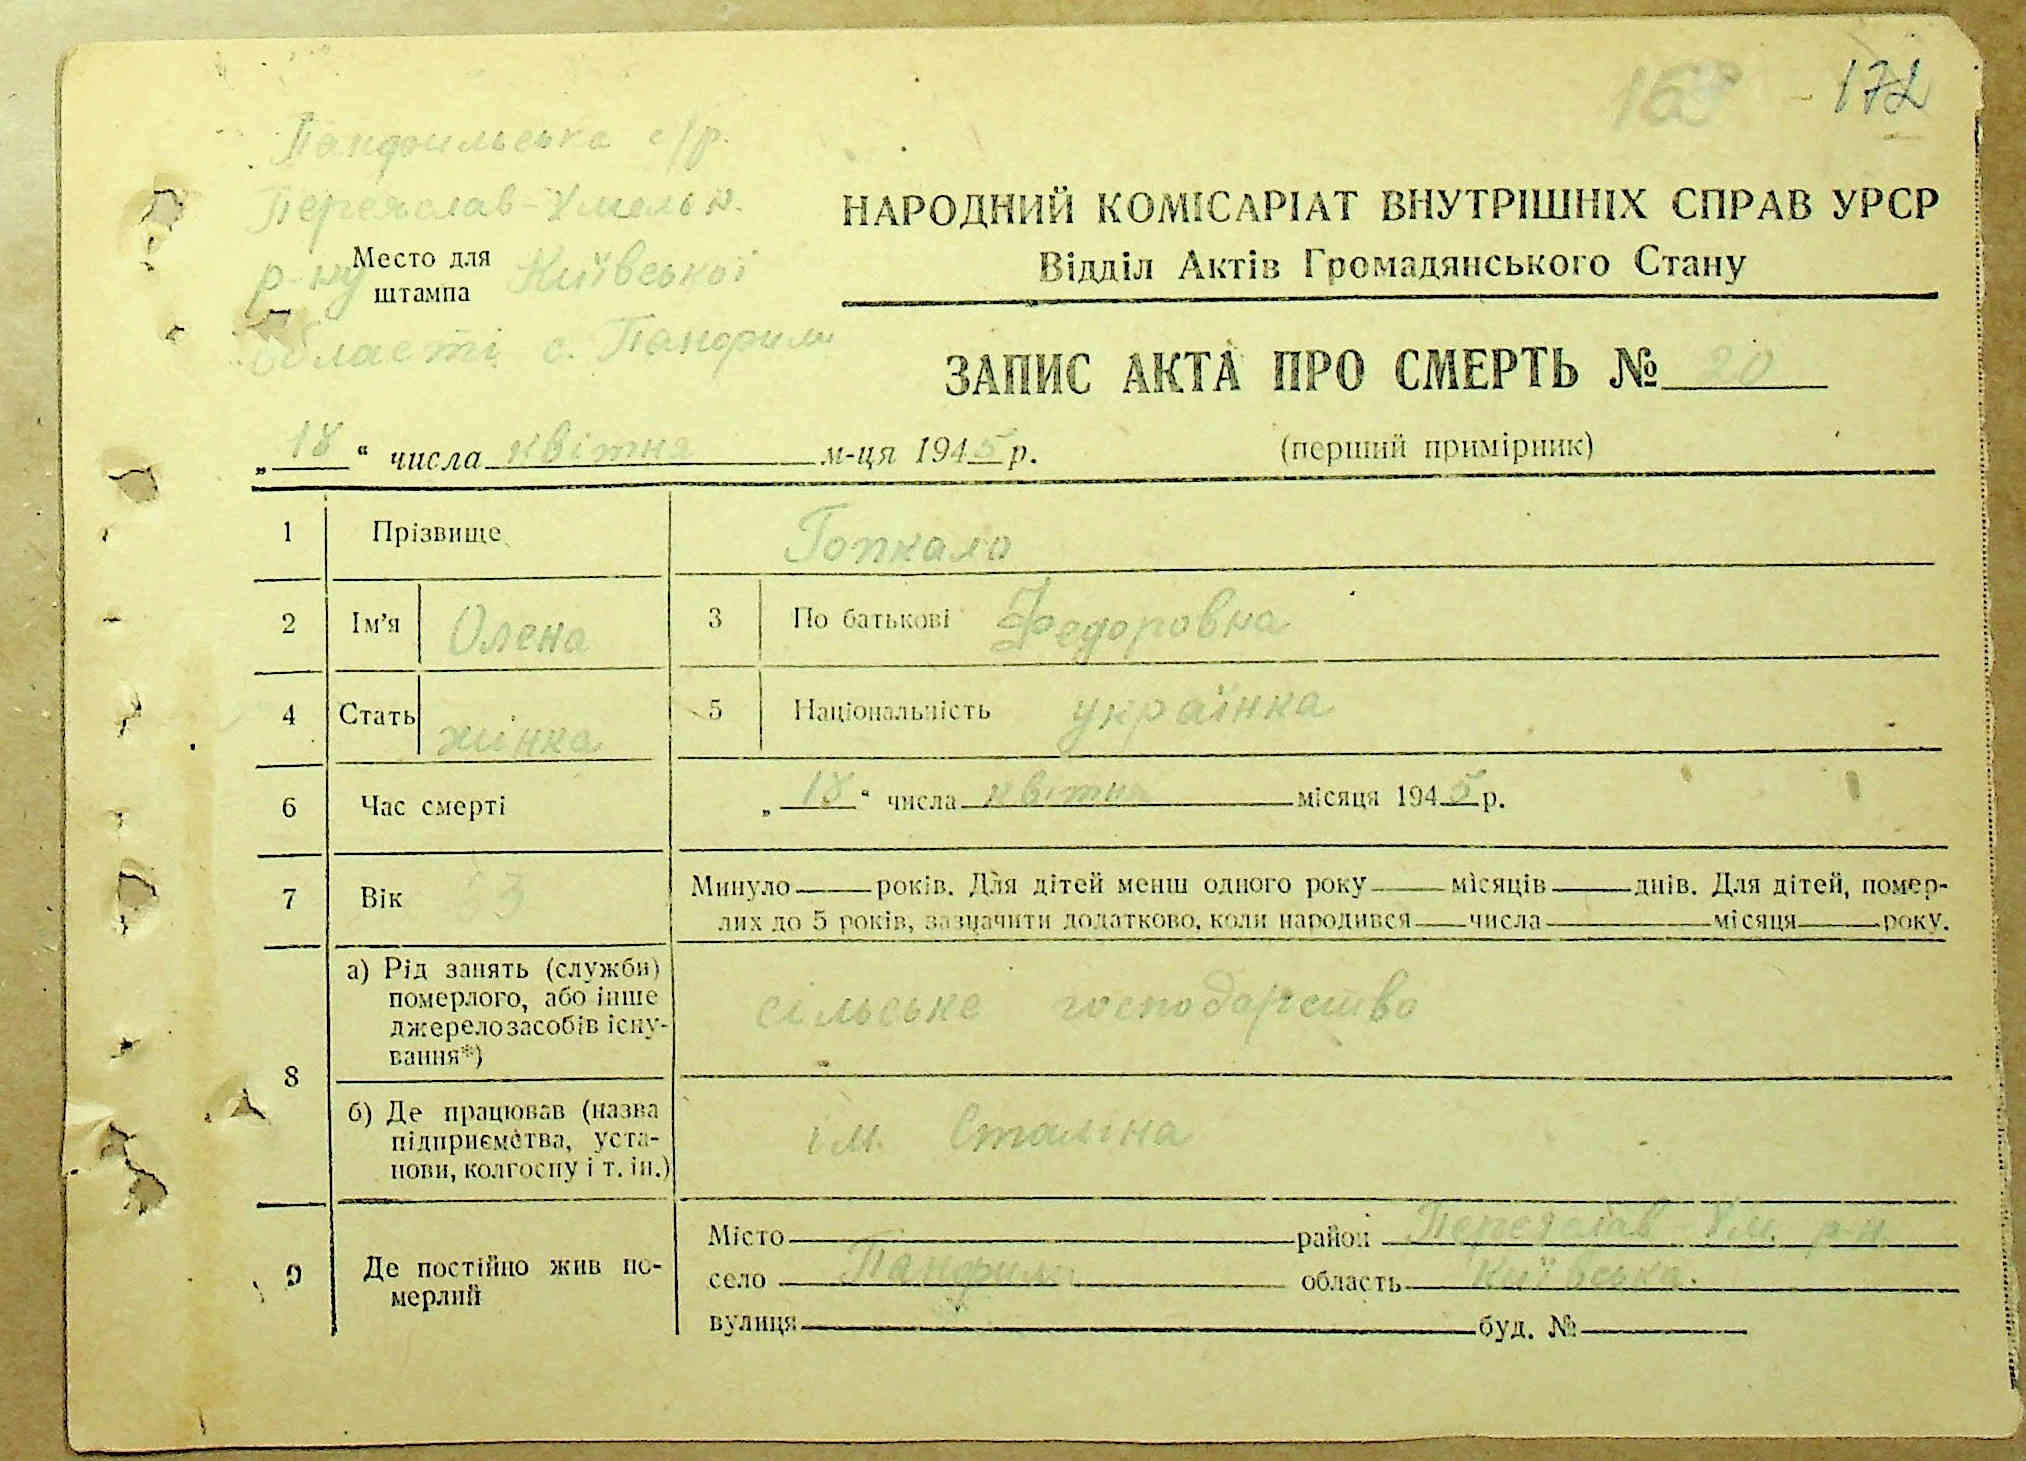 172
Панфильська с/р.
Переяслав-Хмельн.
р-ну Київської
області с. Панфили
Место для
штампа
НАРОДНИЙ КОМІСАРІАТ ВНУТРІШНІХ СПРАВ УРСР
Відділ Актів Громадянського Стану
ЗАПИС АКТА ПРО СМЕРТЬ № 20
„18“ числа квітня м-ця 1945 р. (перший примірник)
1 Прізвище Гопкало
2 Ім'я Олена 3 По батькові Федоровна
4 Стать жінка 5 Національність українка
6 Час смерті „18“ числа квітня місяця 1945 р.
7 Вік 3 Минуло років. Для дітей менш одного року місяців днів. Для дітей, помер-
лих до 5 років, зазначити додатково, коли народився числа місяця року.
8 а) Рід занять (служби)
померлого, або інше
джерело засобів існу-
вання*)
сільське господарство
б) Де працював (назва
підприємства, уста-
нови, колгоспу і т. ін.)
ім. Сталіна
9 Де постійно жив по-
мерлий
Місто район Переяслав-Хм. р-н
село Панфили область Київська.
вулиця буд. №